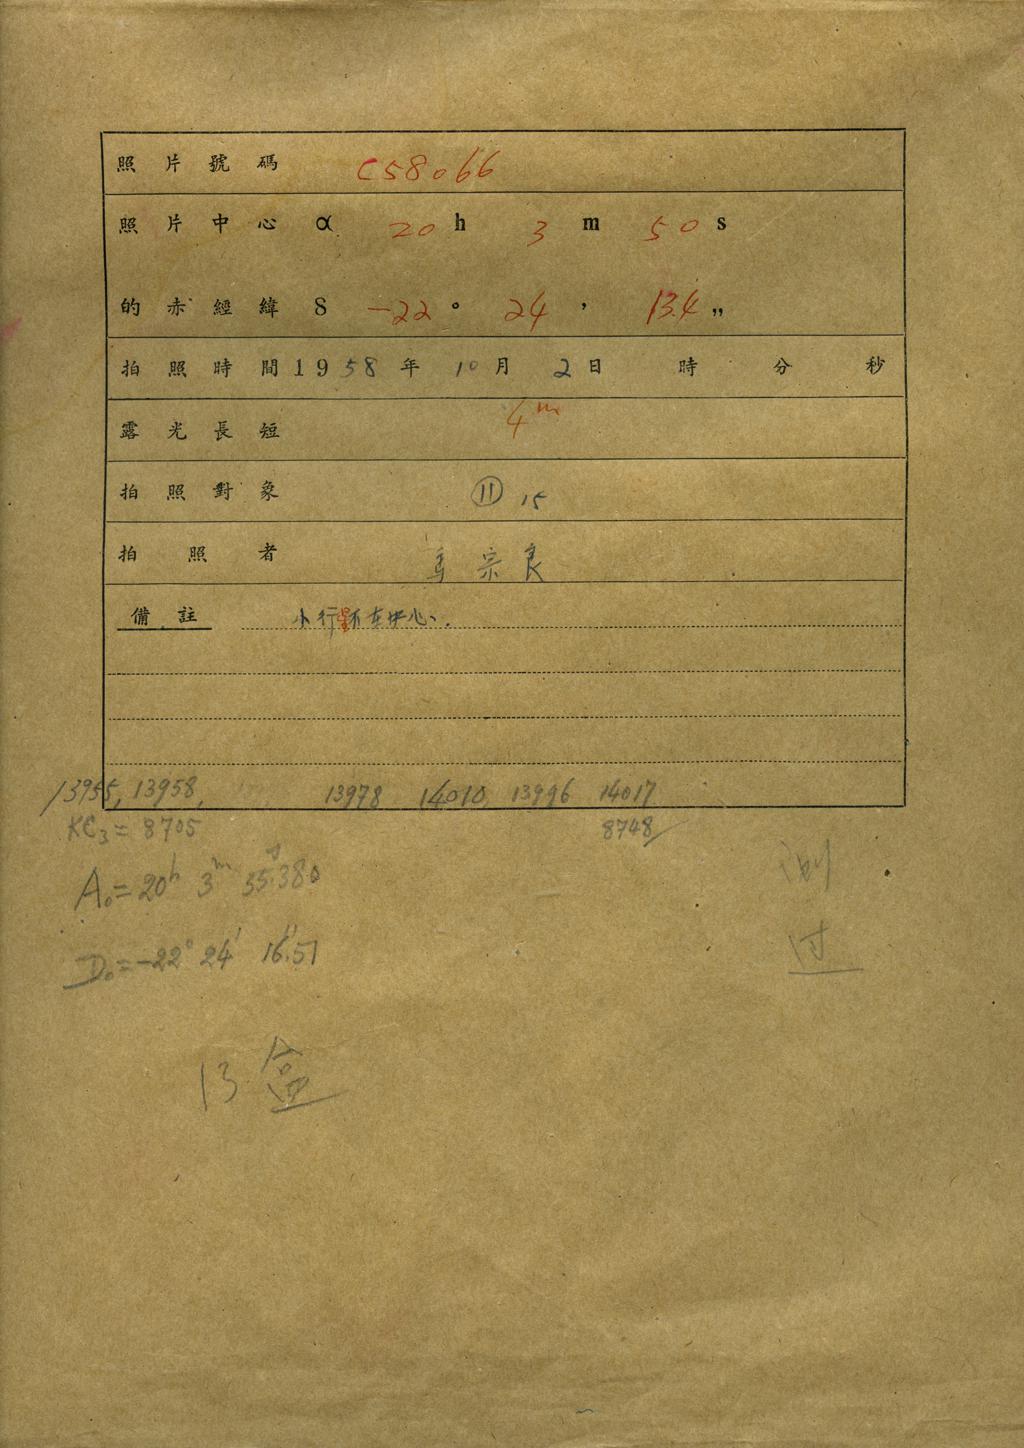 照片號碼 C58066
照片中心 α 20 h 3 m 50 s
的赤經緯 δ -22 ° 24 ' 13.4 "
拍照時間 1958年 10月 2日 時 分 秒
露光長短 4m
拍照對象 ⑪ 15
拍照者 宗良
備註 小行星不在中心.
13955, 13958, 13978 14010 13996 14017
KC3 = 8705 8748
A0 = 20h 3m 35s.380
D0 = -22° 24' 16".51
測
过
13 盒